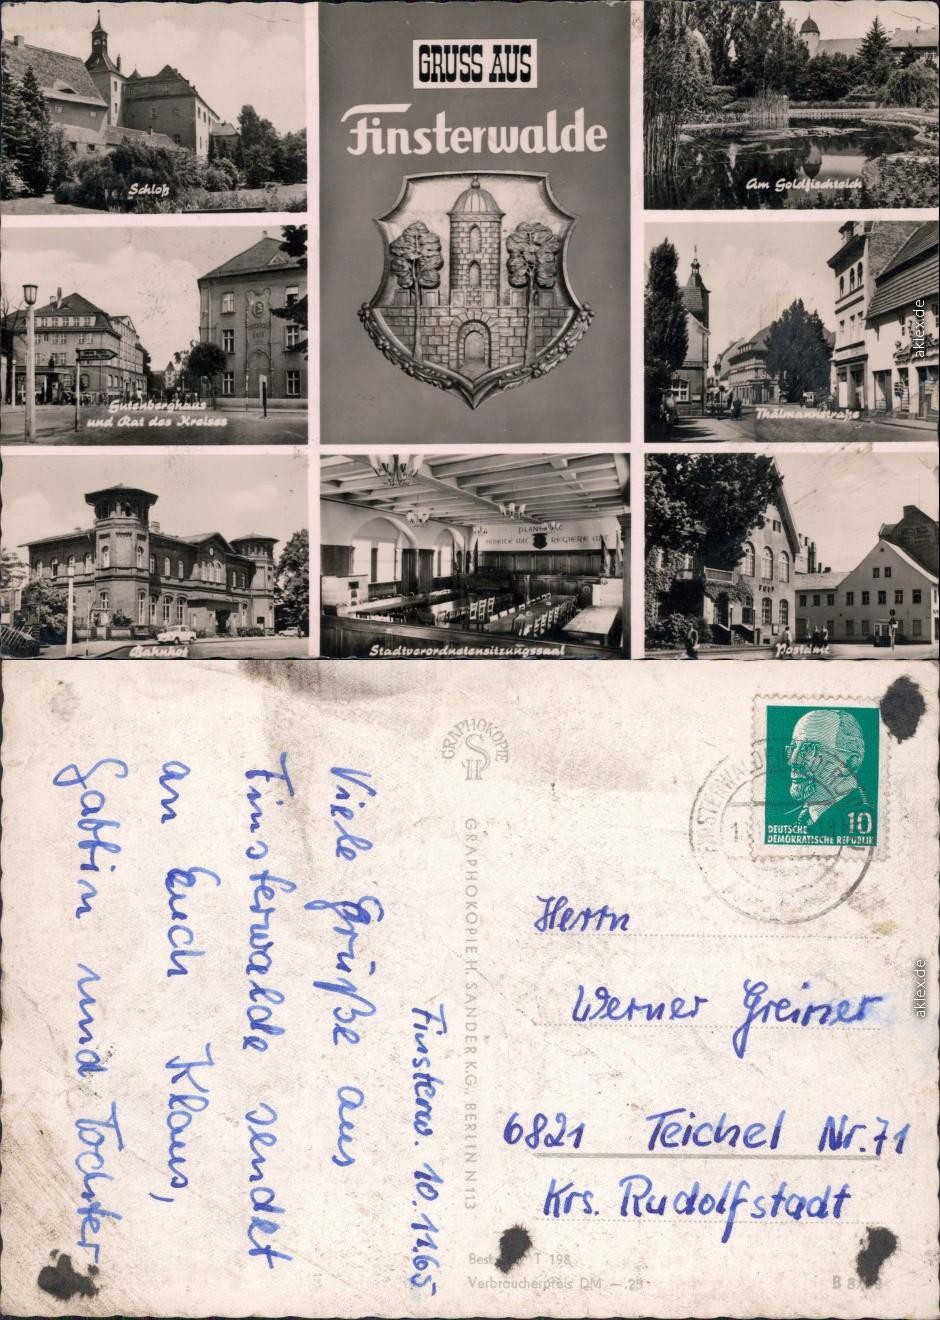 GRUSS AUS
Finsterwalde
Schloß
Am Goldfischteich
Gutenberghaus
und Rat des Kreises
Thälmannstraße
PLANE MIT
ARBEITE MIT REGIERE MIT
POST
Bahnhof
Stadtverordnetensitzungssaal
Postamt
aklex.de
GRAPHOKOPIE
H S
GRAPHOKOPIE H. SANDER K.G., BERLIN N 113
FINSTERWALDE
10
DEUTSCHE
DEMOKRATISCHE REPUBLIK
Finsterw. 10.11.65
Viele Grüße aus
Finsterwalde sendet
an Euch Klaus,
Gattin und Tochter
Herrn
Werner Greiner
6821 Teichel Nr. 71
Krs. Rudolfstadt
T 198
Verbraucherpreis DM —.25
aklex.de